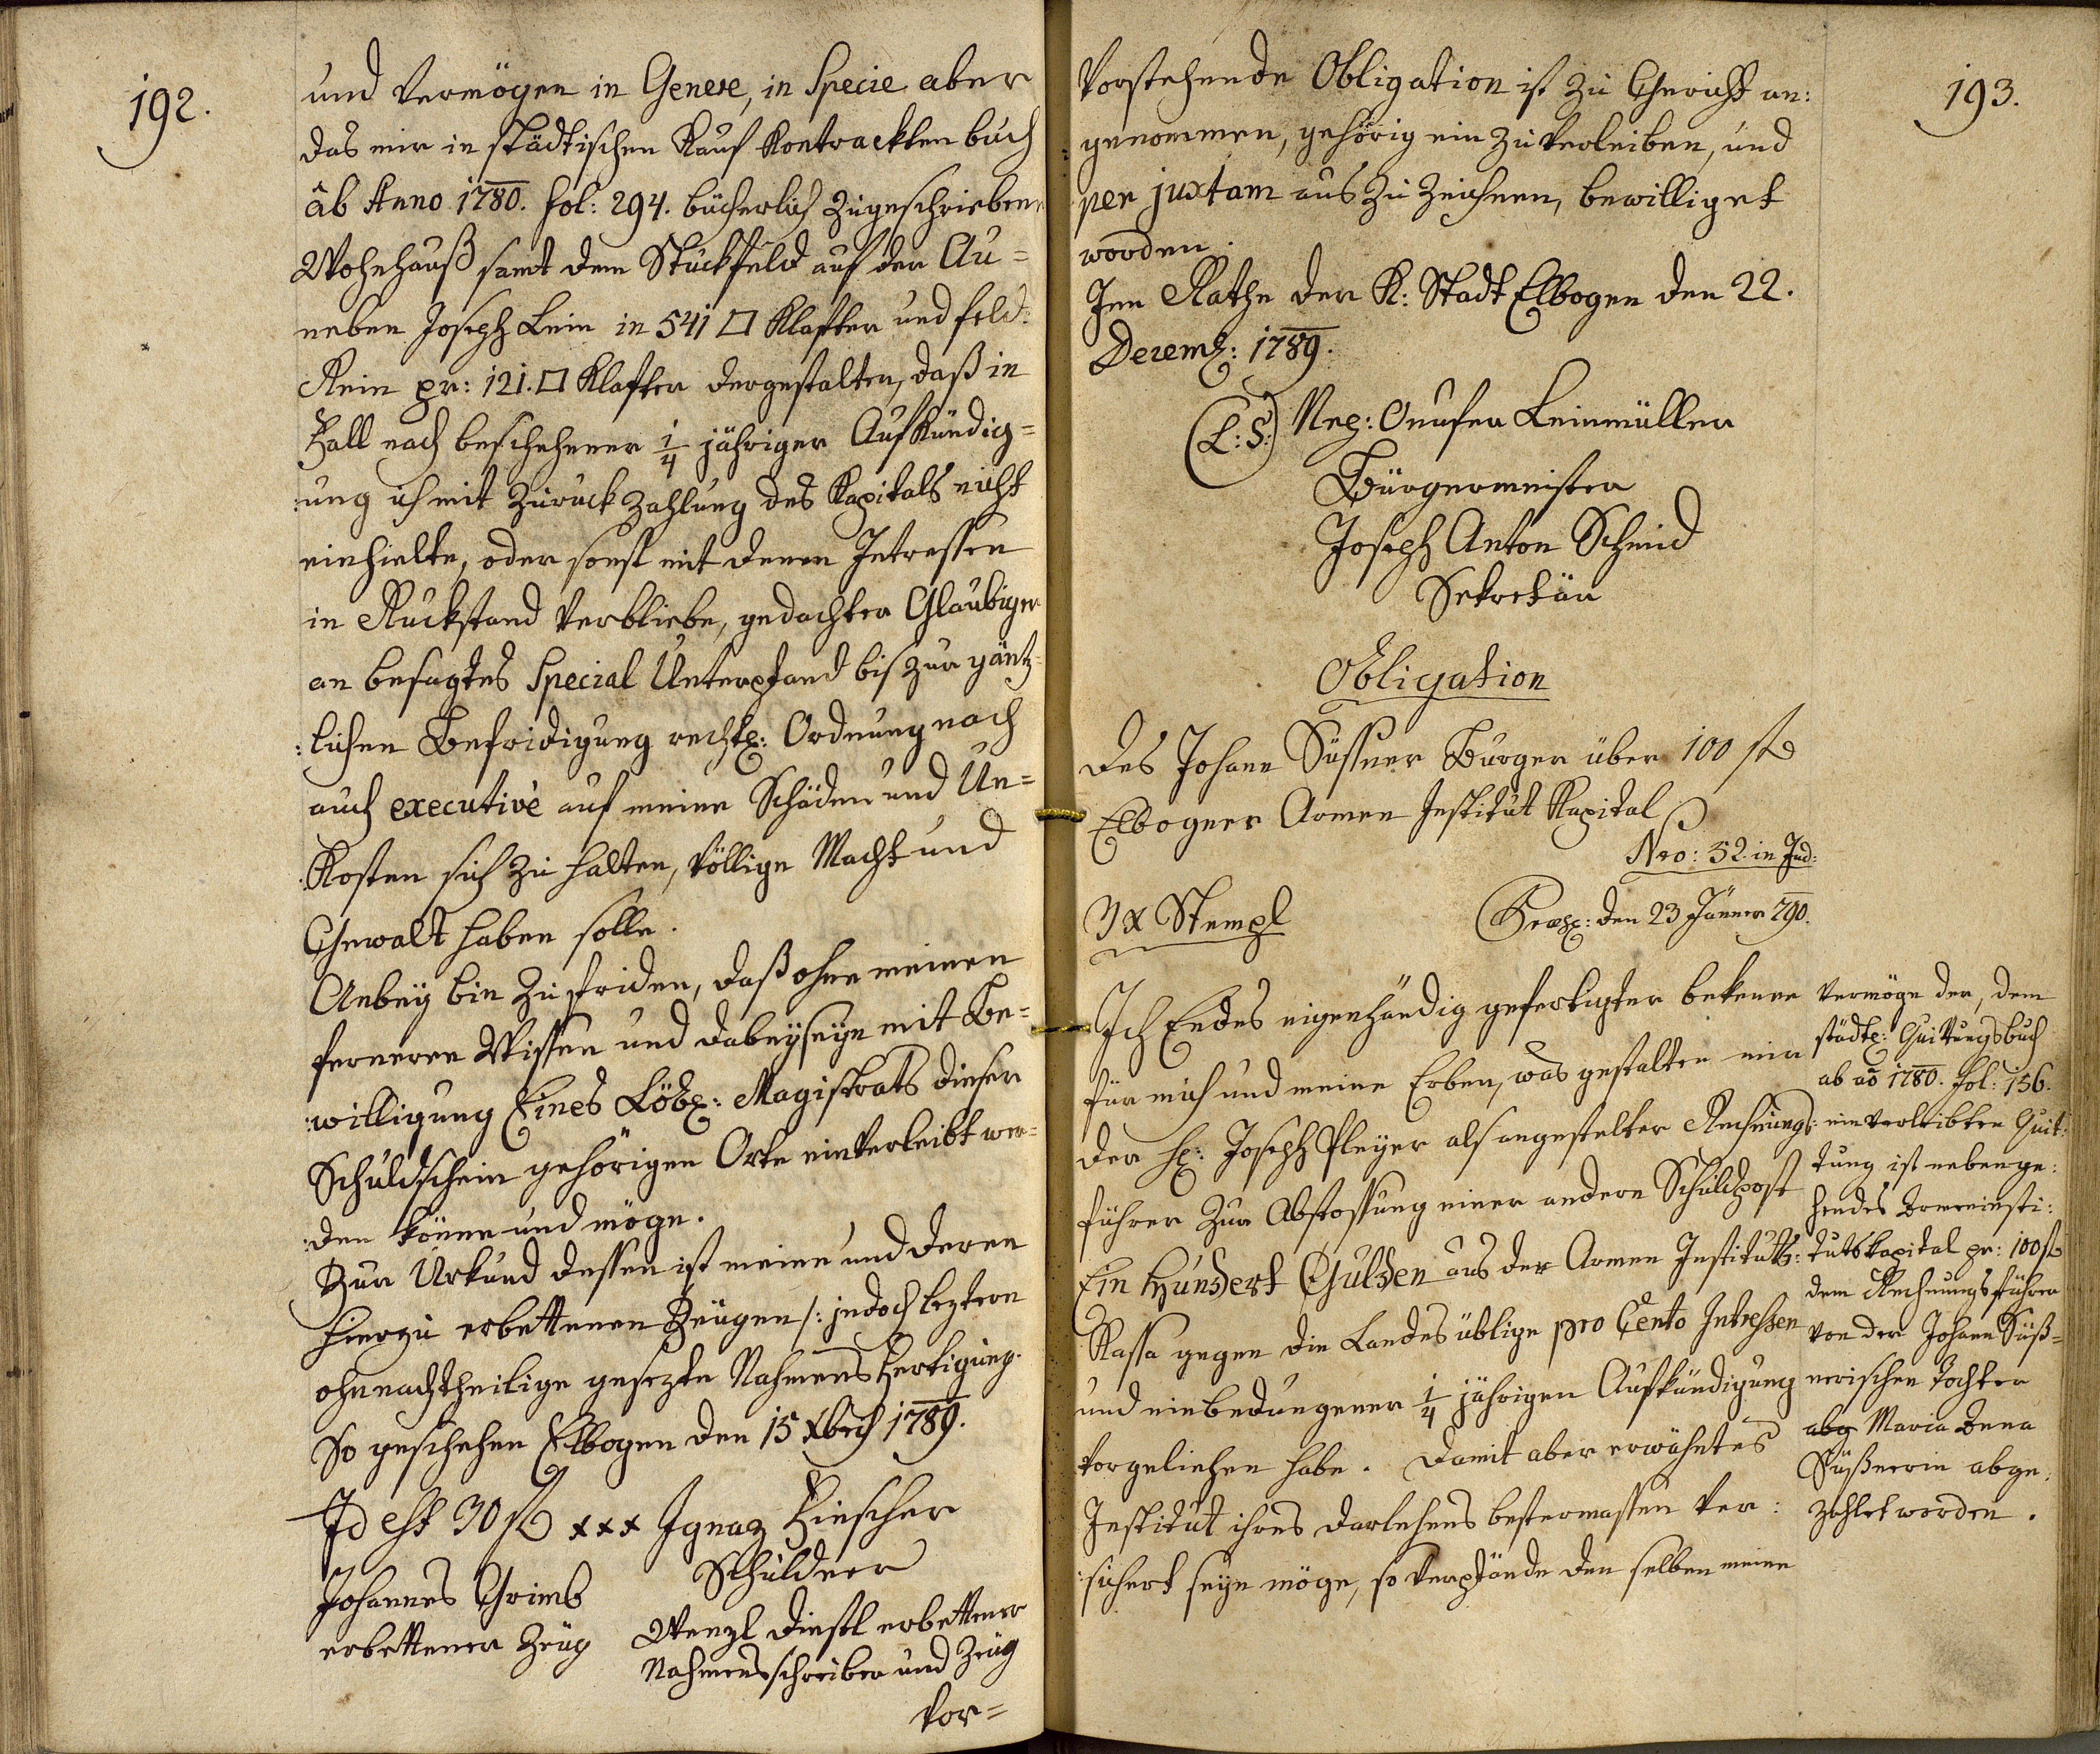 192.
und Vermögen in Genere, in Specie aber
das mir in städtischen Kauf Kontrackten buch
âb Anno 1780. fol: 294. bücherlich zugeschrieben
Wohnhauß samt dem Stuckfeld auf der Au=
neben Joseph Lein in 541 □ Klafter und feld:
Rein pr: 121. □ Klafter dergestalten, daß in
Fall nach beschehener 1/4 jähriger Aufkündig=
:ung ich mit Zuruck Zahlung des Kapitals nicht
einhielte, oder sonst mit denen Intressen
in Ruckstand verbliebe, gedachter Glaubiger
an besagtes Special Unterpfand bis zur gäntz=
:lichen Befridigung rechtl: Ordnung nach
auch executivè auf meine Schäden und Un=
:Kosten sich zu halten, völlige Macht und
Gewalt haben solle.
Anbeÿ bin Zufriden, daß ohne meinen
ferneren Wissen und dabeÿseÿn mit Be=
:willigung Eines Löbl: Magistrats dieser
Schuldschein gehörigen Orte einverleibt wer=
:den könne und möge.
Zur Urkund dessen ist meine und deren
hierzu erbettenen Zeugen /: jedoch leztern
ohnnachtheilige gesezte Nahmens Fertigung.
So geschehen Elbogen den 15 Xbris 1789.
Id est 30 fl xxx Ignaz Fischer
Schuldner
Johannes Grimb
erbettener Zeug
Wenzl Dinstl erbettener
Nahmensschreiber und Zeug
Vor=
193.
Vorstehende Obligation ist zu Gericht an:
:genommen, gehörig ein zu verleiben, und
per juxtam aus zu zeichnen, bewilliget
worden.
Im Rathe der K: Stadt Elbogen den 22.
Decemb: 1789.
(L:S:) Neg: Onufer Leinmüller
Bürgermeister
Joseph Anton Schmid
Sekretär
Obligation
des Johann Süssner Burger über 100 fl
Elbogner Armen Institut Kapital
Nro: 52. in Jud:
3 x Stempl
Præs: den 23 Jänner 790.
Ich Endes eigenhändig gefertigter bekenne
für mich und meine Erben, was gestalten mir
der H: Joseph Pleÿer als angestelter Rechnungs:
führer zur Abstossung einer andern Schuldpost
Ein Hundert Gulden aus der Armen Instituts:
Kassa gegen die Landes üblige pro Cento Intressen
und einbedungener 1/4 jährigen Aufkündigung
vorgeliehen habe. Damit aber erwähntes
Institut ihres Darlehens bestermassen ver:
:sichert seÿn möge, so verpfände den selben meine
Vermöge der, dem
städtl: Quittungsbuch
ab aõ 1780. fol: 156.
einverleibten Quit:
tung ist nebenge:
hendes Armeninsti:
tutskapital pr: 100 fl
dem Rechnungsführer
von der Johann Süß=
nerischen Tochter
abg Maria Anna
Süßnerin abge:
zahlet worden.